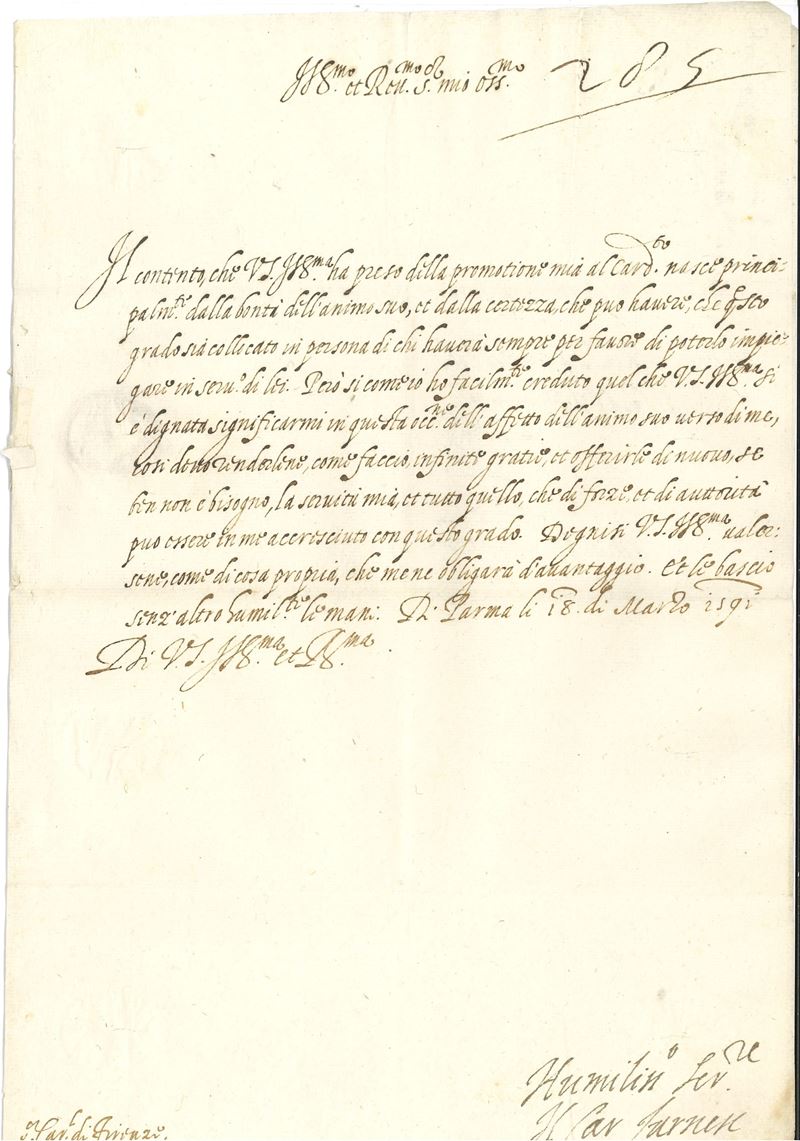 Ill.mo et Reu.mo S.or mio oss.mo 285
Il contento, che V.S. Ill.ma ha preso della promotione mia al Card.to nasce princi-
palm.te dalla bontà dell'animo suo, et dalla certezza, che può hauere, che q.sto
grado sia collocato in persona di chi hauerà sempre per fauore di poterlo impie-
gare in seru.o di lei. Però si come io ho facilm.te creduto quel che V.S. Ill.ma si
è dignata significarmi in questa occ.ne dell'affetto dell'animo suo uerso di me,
così deuo renderlene, come faccio, infinite gratie, et offerirle di nuouo, se
ben non è bisogno, la seruitù mia, et tutto quello, che di forze, et di auttorità
può essere in me accresciuto con questo grado. Degnisi V.S. Ill.ma ualer-
sene, come di cosa propria, che me ne obligarà d'auantaggio. Et le bascio
senz'altro humil.te le mani. Di Parma li 18. di Marzo 1591
Di V.S. Ill.ma et R.ma
Humiliss.o Ser.re
Il Car Farnese
S.or Car.l di Firenze.